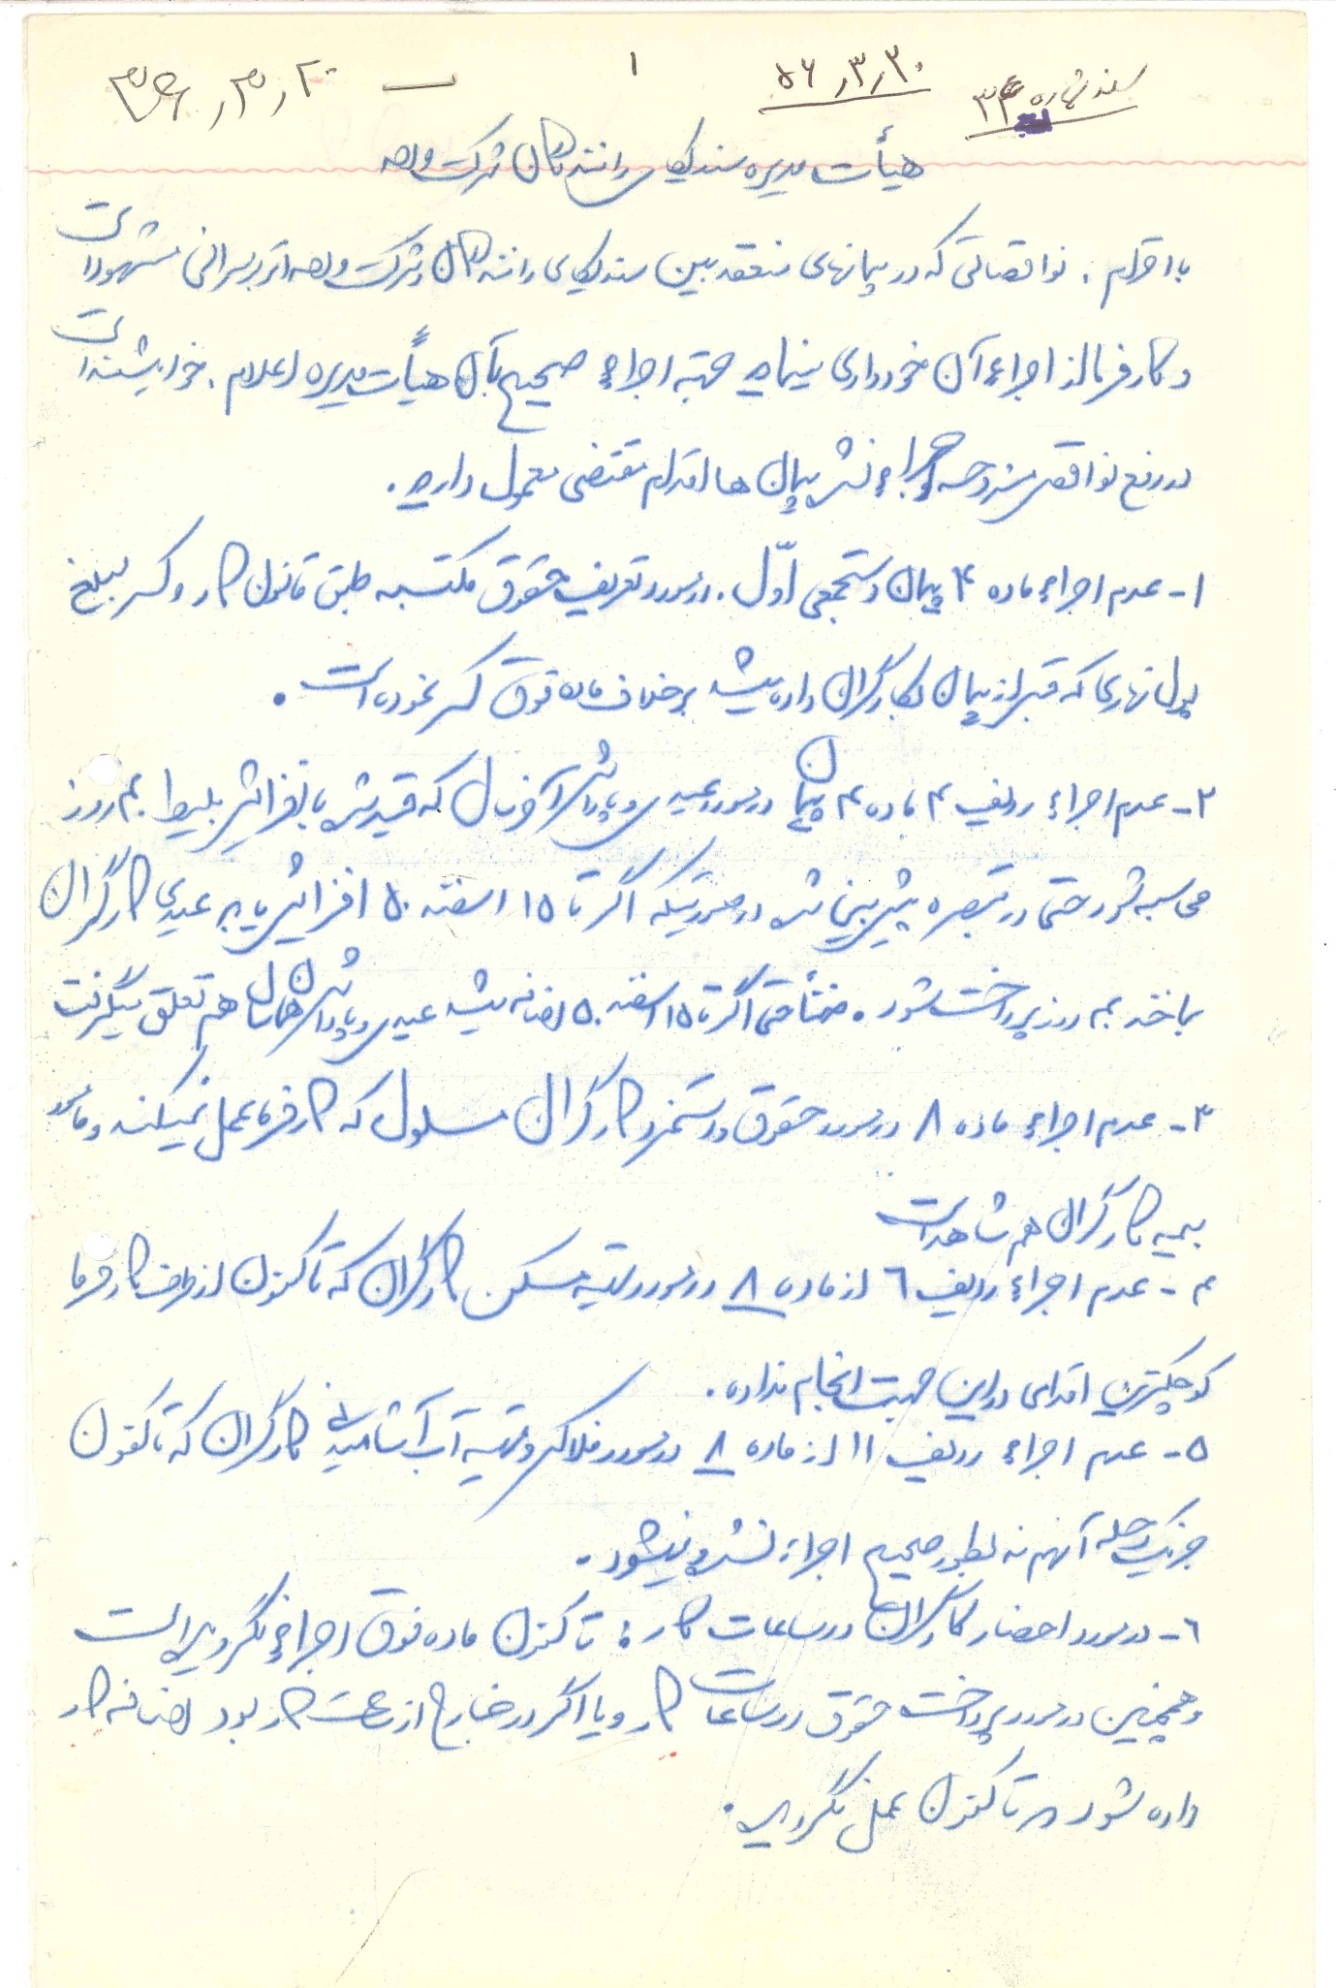 سند شماره ۳۴ ۵۶٫۳٫۳۰ ۱
هیأت مدیره سندیکای رانندگان شرکت واحد
با احترام . نواقصاتی که در پیمانهای منعقد بین سندیکای رانندگان و شرکت واحد اتوبوسرانی مشهود است
و کارفرما از اجراء آن خودداری مینماید جهة اجراء صحیح بآن هیأت مدیره اعلام . خواهشمند است
در رفع نواقص مشروحه اجراء نشده پیمان ها اقدام مقتضی معمول دارید .
۱- عدم اجراء ماده ۴ پیمان دستجمعی اوّل . در مورد تعریف حقوق مکتسبه طبق قانون کار و کسر مبلغ
پول نهاری که قبل از پیمان بکارگران داده میشد برخلاف ماده فوق کسر نموده است .
۲- عدم اجراء ردیف ۴ ماده ۴ پیمان در مورد عیدی و پاداش آخر سال که قید شده با افزایش بلیط به روز
محاسبه شود حتی در تبصره پیش بینی شده در صورتیکه اگر تا ۱۵ اسفند ۵۰ افزایش یابد عیدی کارگران
بماخذ به روز پرداخت شود . ضمناً حتی اگر تا ۱۵ اسفند ۵۰ اضافه میشد عیدی و پاداش همان سال هم تعلق میگرفت
۳- عدم اجراء ماده ۸ در مورد حقوق و دستمزد کارگران مسلول که کارفرما عمل نمیکند
بیمه کارگران هم شاهد است
۴- عدم اجراء ردیف ۶ از ماده ۸ در مورد تهیه مسکن کارگران که تا کنون از طرف کارفرما
کوچکترین اقدامی در این جهت انجام نداده .
۵- عدم اجراء ردیف ۱۱ از ماده ۸ در مورد فلاکس و تهیه آب آشامیدنی کارگران که تا کنون
جز یک مرحله آنهم نه بطور صحیح اجراء نشده و نمیشود .
۶- در مورد احضار کارگران در ساعات کار : تا کنون ماده فوق اجراء نگردیده است
و همچنین در مورد پرداخت حقوق در ساعات کار و یا اگر در خارج از ساعت کار بود اضافه کار
داده شود تا کنون عمل نگردیده .